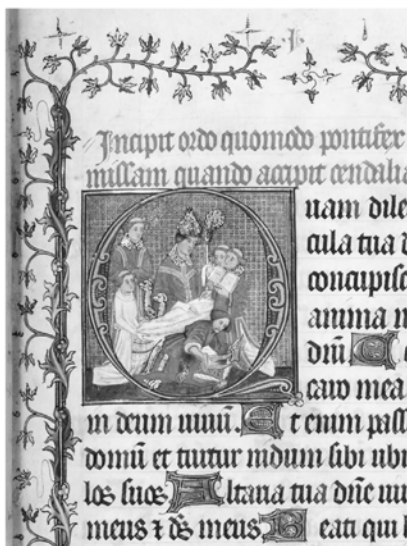 Incipit ordo quomodo pontifex
missam quando accipit cendalia
Quam dile
cula tua d
concupisc
anima m
dnī. C
caro mea
in deum uiuū. Et enim pass
domū et turtur nidum sibi ubi
los suos Altaria tua dn̄e uir
meus ⁊ ds̄ meus Beati qui h